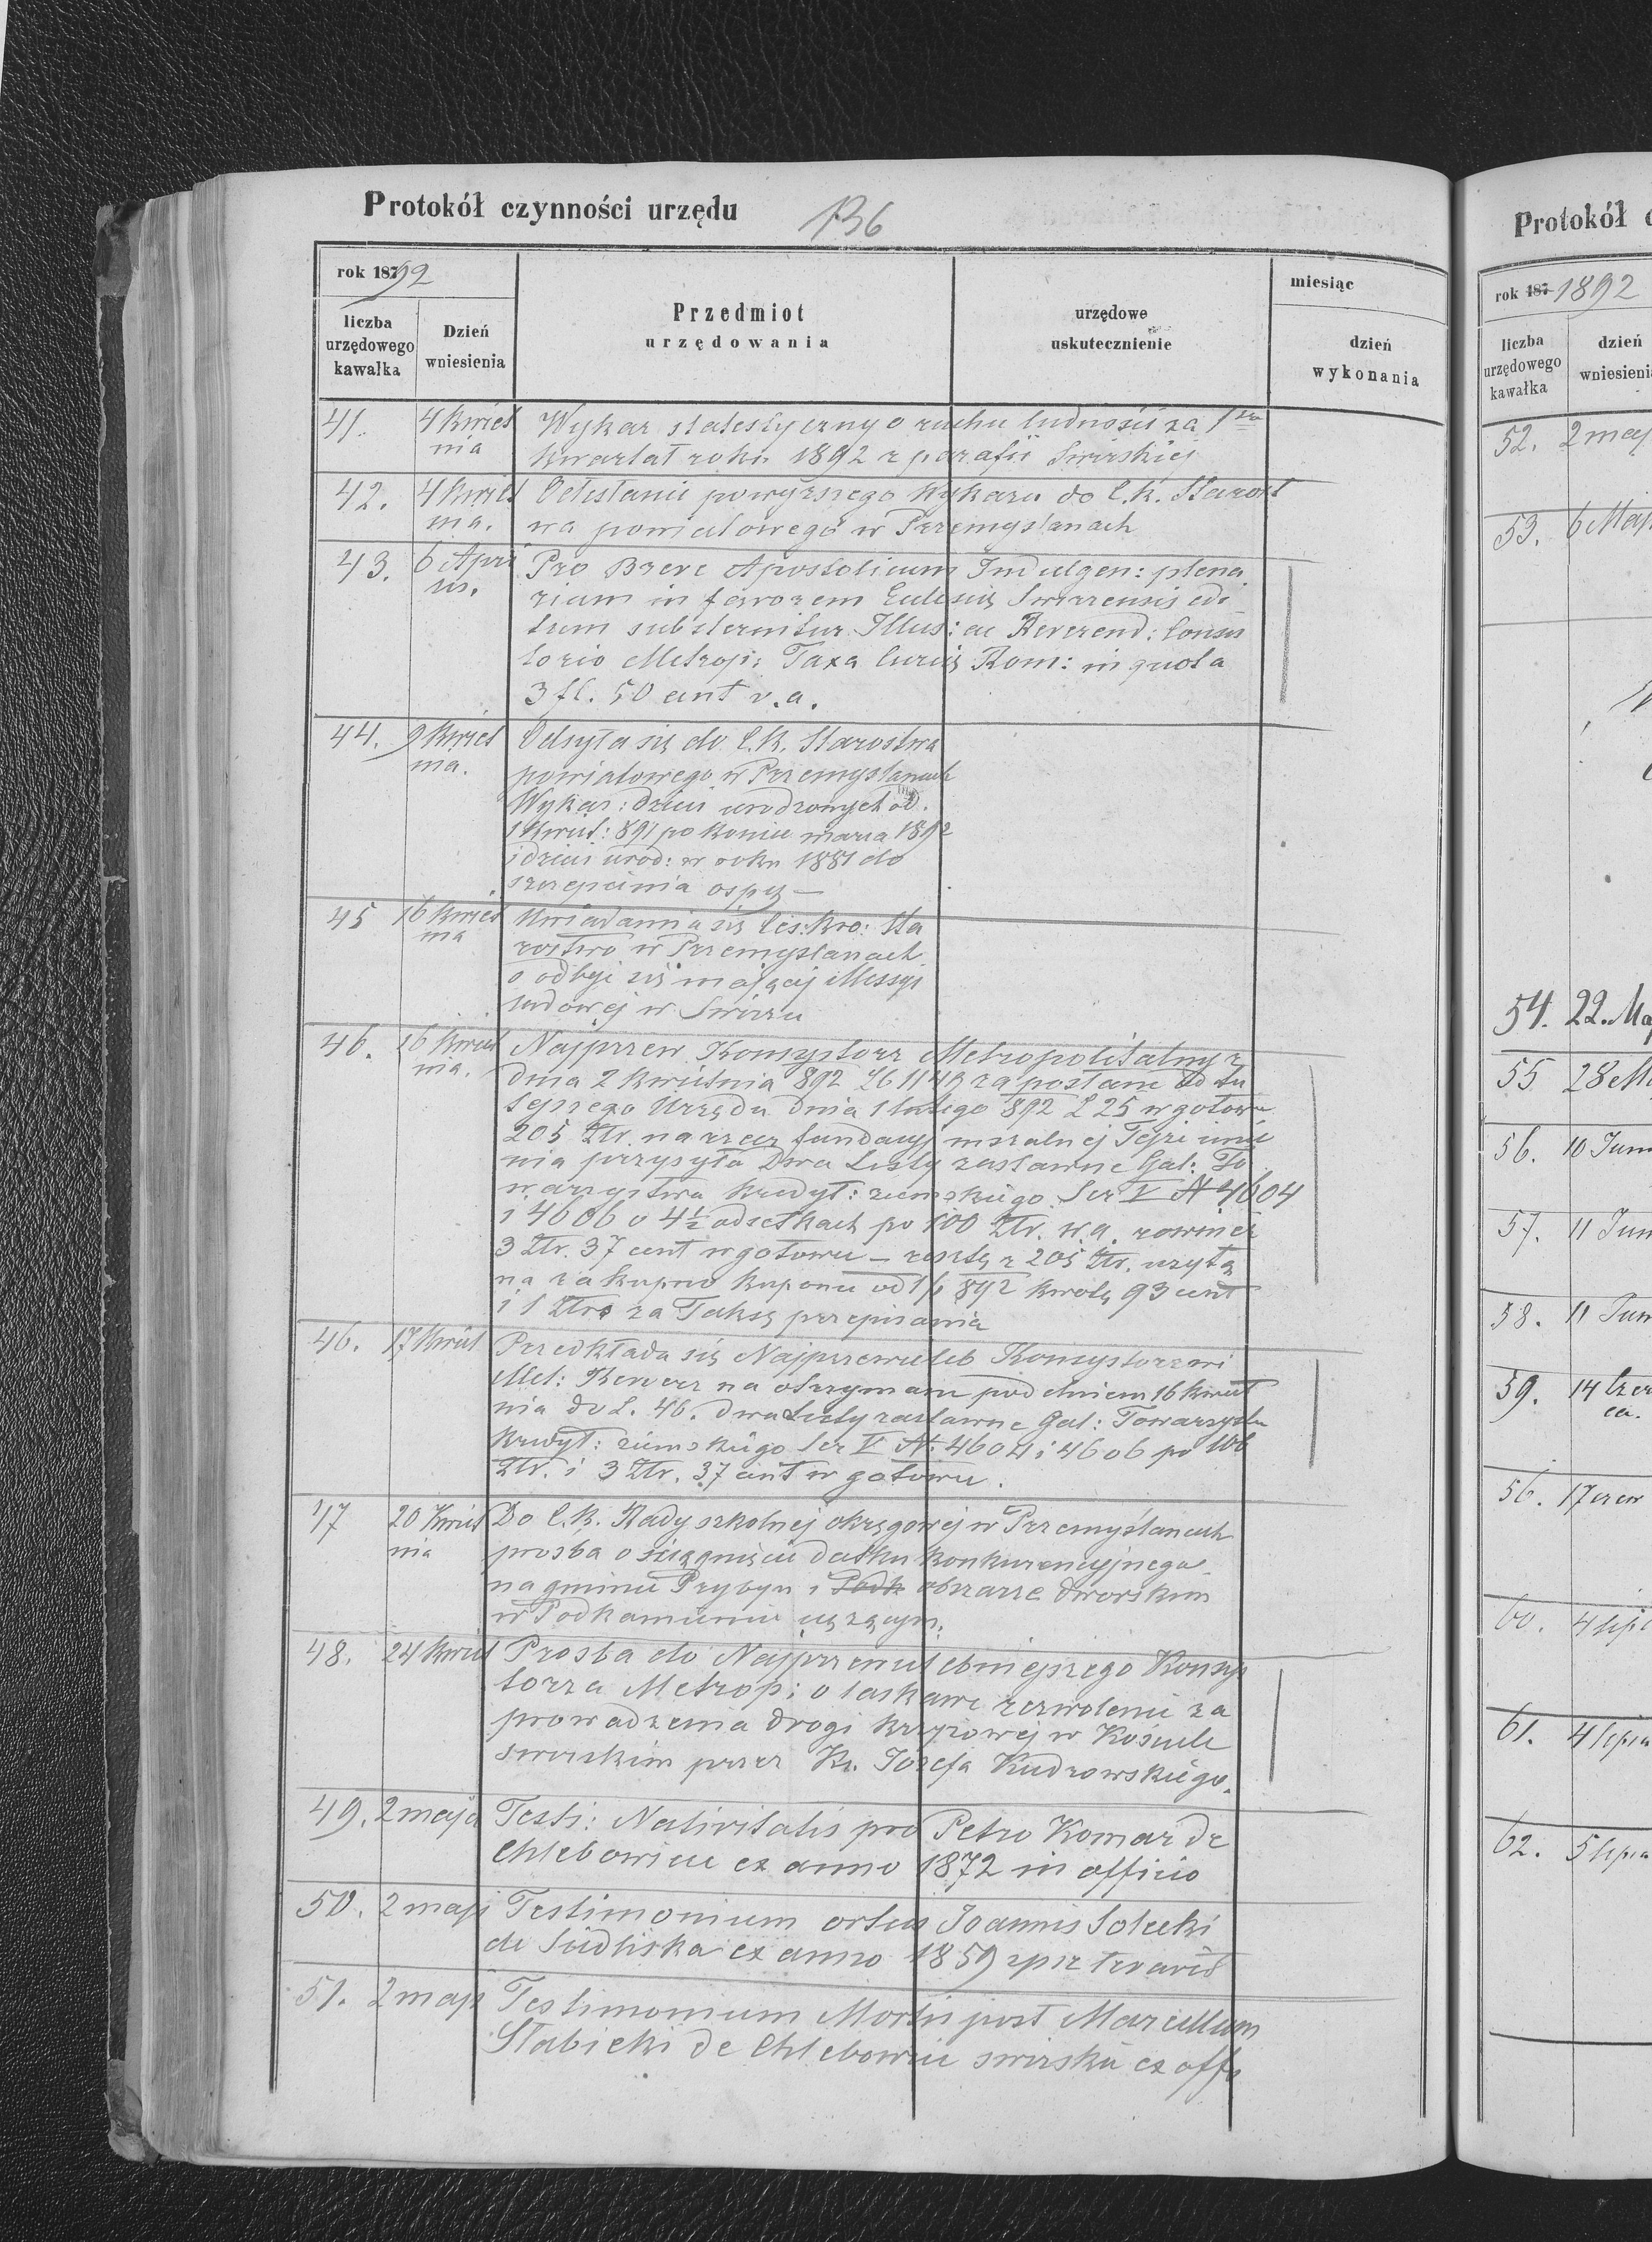 Protokół czynności urzędu 136
rok 18792
liczba urzędowego kawałka
Dzień wniesienia
Przedmiot urzędowania
urzędowe uskutecznienie
miesiąc
dzień wykonania
41. 4 Kwiet Wykaz statestyczny o ruchu ludności za 1
nia kwartał roku 1892 z parafii Swirskiej
42. 4 Kwiet Odesłanie powyższego Wykazu do C.K. Starost
nia. wa powiatowego w Przemyslanach
43. 6 Apri Pro Breve Apostolicum Indulgen: plena
lis. rium in favorem Eclesię Swirzensis edi
tum substernitur Illus: ac Reverend: Consis
torio Metrop: Taxa Curię Rom: in quota
3 fl. 50 cent v.a.
44. 9 Kwiet Odsyła się do C.K. Starostwa
nia. powiatowego w Przemyslanach
Wykaz: dzieci urodzonych od
1 Kwiet: 891 po koniec marca 1892
i dzieci urod: w roku 1881 do
szczepienia ospy —
45 16 Kwiet Uwiadamia się Ces: Kro: Sta
nia rostwo w Przemyslanach
o odbyć się mającej Missyi
ludowej w Swirzu
46. 16 Kwiet Najprzew. Konsystorz Metropolitalny z
nia. dnia 2 Kwietnia 892 1149 za posłane od tu
tejszego Urzędu dnia 1 lutego 892 L 25 w gotowce
205 Ztr. na rzecz fundacyj mszalnej Tejże imie
nia przysyła Dwa Listy zastawne Gal: To
warzystwa kredyt: ziemskiego Ser V N 4604
i 4606 o 4½ odsetkach po 100 Ztr. w.a. rownież
3 Ztr. 37 cent w gotowce — resztę z 205 Ztr. użytą
na zakupno kuponu od 1/1 892 kwotę 93 cent
i 1 Ztr za Taksę przepisania
46. 17 Kwiet Przedkłada się Najprzewieleb Konsystorzowi
Met: Rewers na otrzymane pod dniem 16 kwiet
nia do L. 46. dwa Listy zastawne Gal: Towarzystw
Kredyt: ziemskiego Ser V N: 4604 i 4606 po 100
Ztr. i 3 Ztr. 37 cent w gotowce.
47 20 Kwiet Do C.K. Rady szkolnej okręgowej w Przemyślanach
nia prosba o ściągnięcie datku konkurencyjnego
na gminie Przybyn i Podk obszarze dworskim
w Podkamieniu ciężącym.
48. 24 Kwiet Prosba do Najprzewielebniejszego Konsys
torza Metrop: o łaskawe zezwolenie za
prowadzenia drogi krzyżowej w Kościele
swirskim przez Ks. Józefa Kudrowskiego.
49. 2 maja Testi: Nativitatis pro Petro Komar de
Chlebowice ex anno 1872 in officio
50. 2 maji Testimonium ortus Joannis Solecki
de Siedliska ex anno 1859
51. 2 maji Testimonium Mortis post Marcellum
Słabicki de Chlebowice swirskie ex offo
Protokół c
rok 187 1892
liczba urzędowego kawałka
dzień wniesieni
52. 2 maj
53. 6 Maj
54. 22. Ma
55 28 Ma
56. 10 Juni
57. 11 Juni
58. 11 Juni
59. 14 Czer
ca.
56. 17 czerw
60. 4 lipc
61. 4 lipca
62. 5 lipca